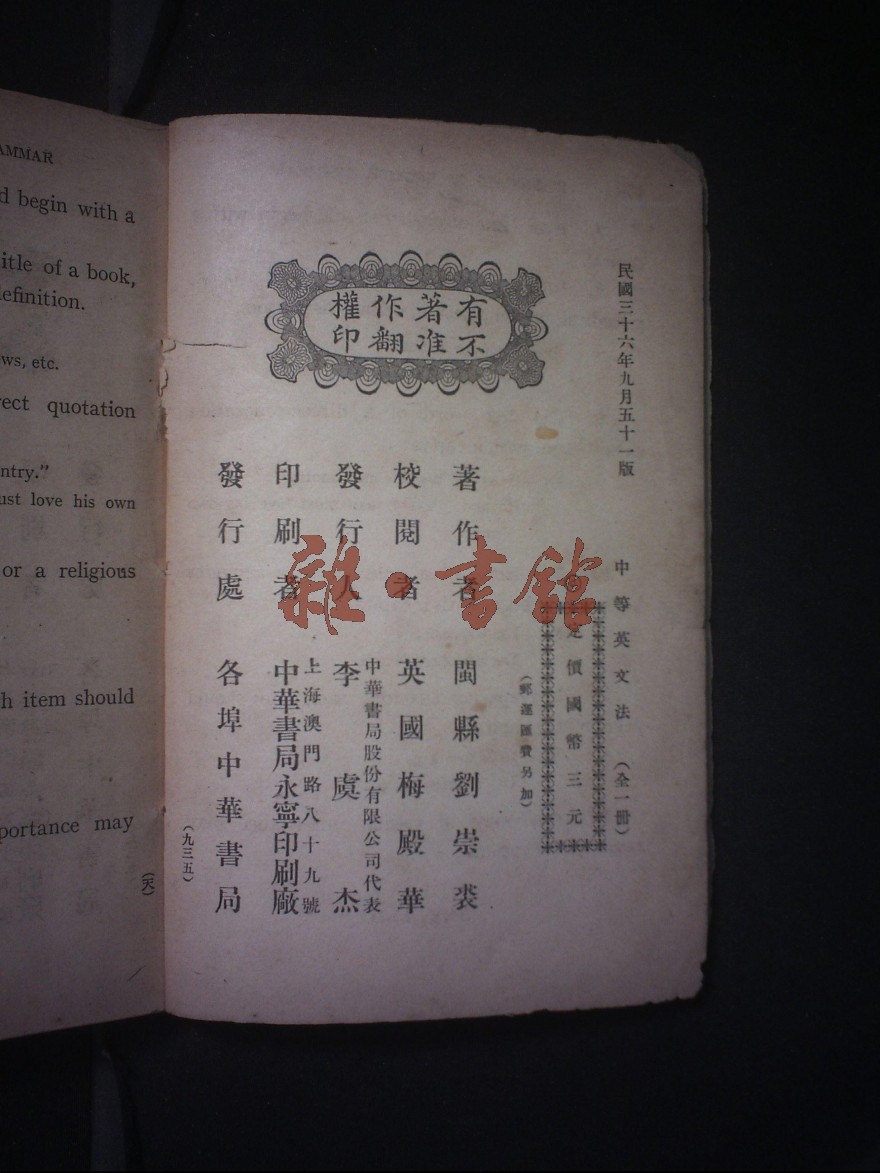 AMMAR
d begin with a
itle of a book,
efinition.
ws, etc.
rect quotation
ntry."
ust love his own
or a religious
h item should
portance may
(天)
民國三十六年九月五十一版
有著作權
不准翻印
中等英文法(全一冊)
定價國幣三元
(郵運匯費另加)
著作者 閩縣劉崇裘
校閱者 英國梅殿華
中華書局股份有限公司代表
發行人 李虞杰
上海澳門路八十九號
印刷者 中華書局永寧印刷廠
發行處 各埠中華書局
(九三五)
雜·書館